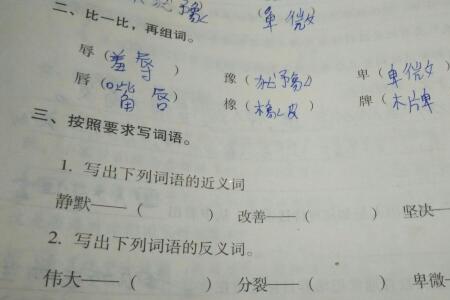 (犹豫) (卑微)
二、比一比，再组词。
辱（羞辱） 豫（犹豫） 卑（卑微）
唇（嘴唇） 橡（橡皮） 牌（木牌）
三、按照要求写词语。
1. 写出下列词语的近义词
静默——（ ） 改善——（ ） 坚决—
2. 写出下列词语的反义词。
伟大——（ ） 分裂——（ ） 卑微—